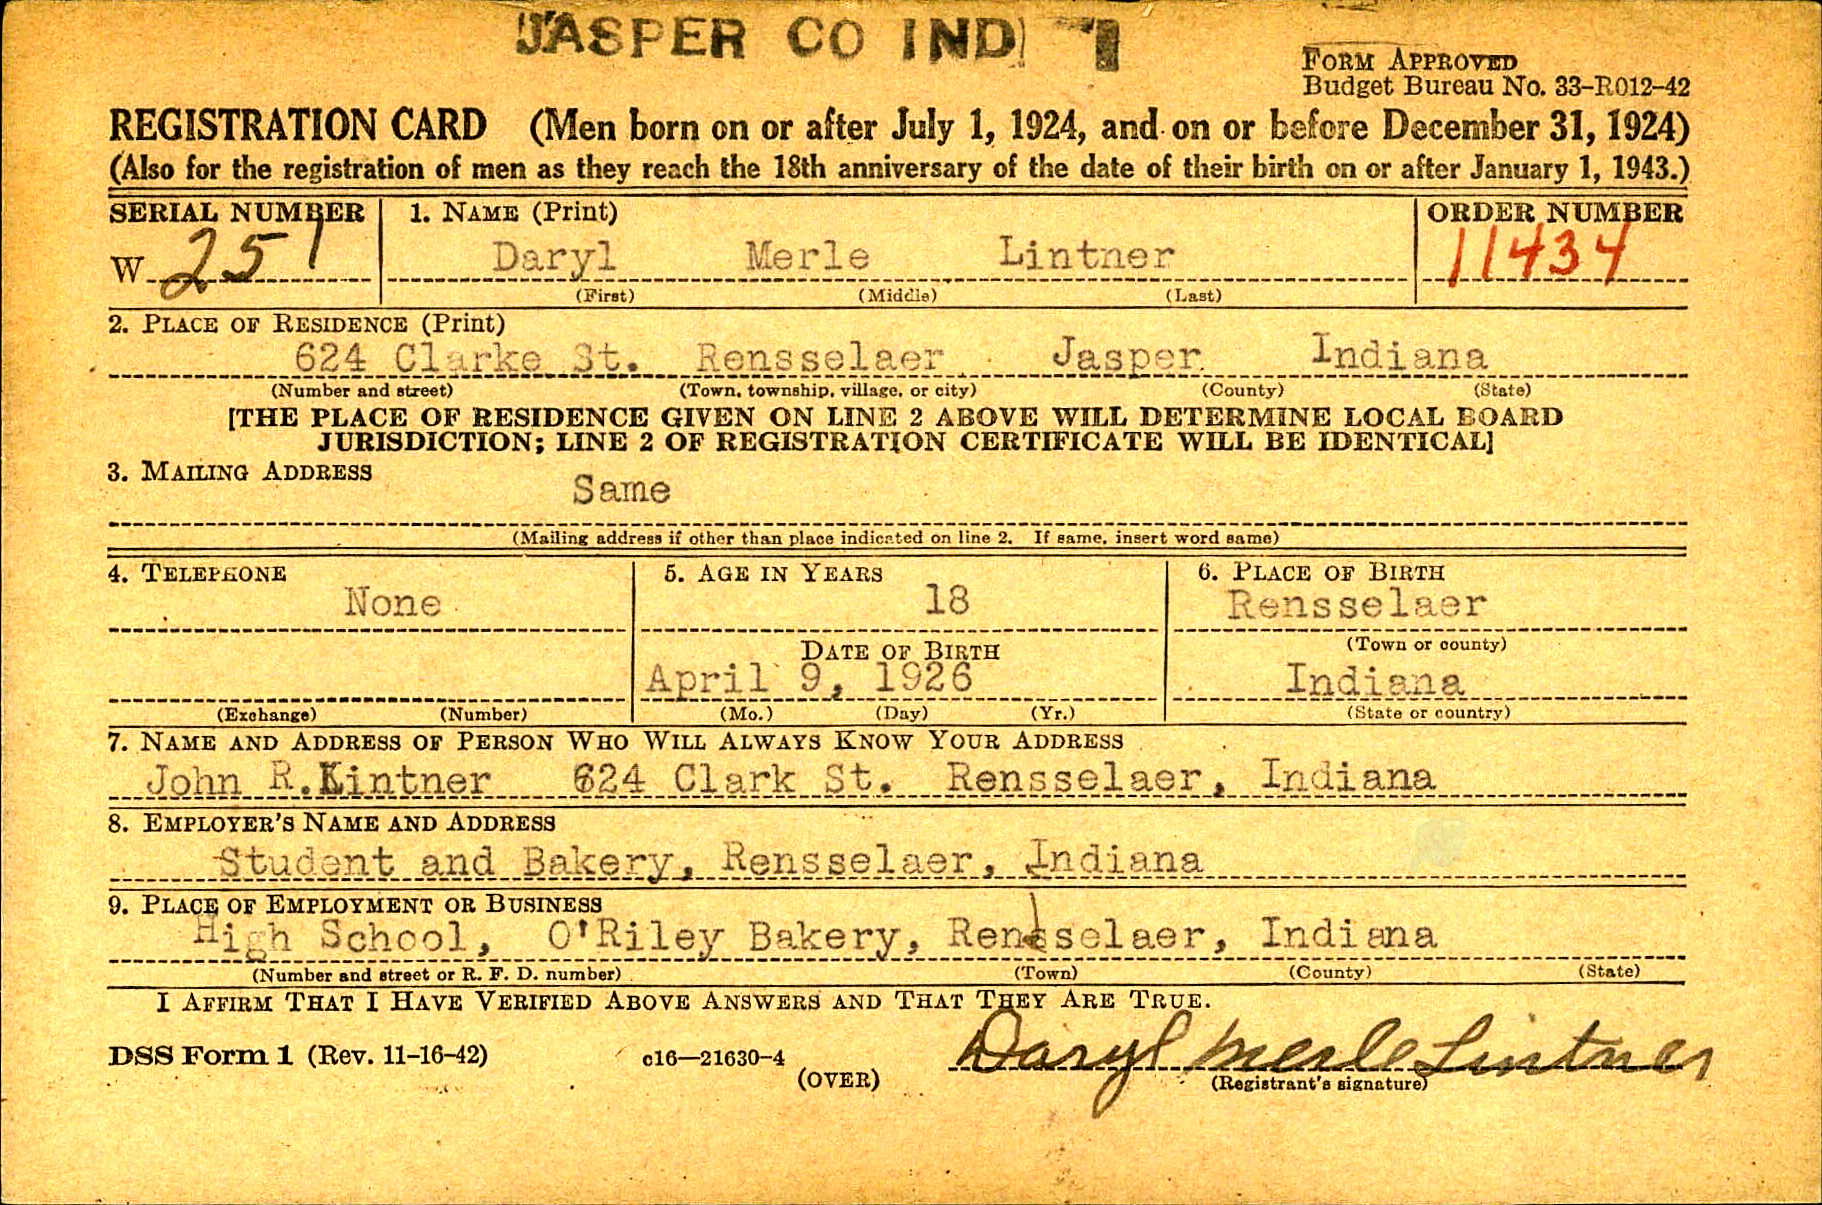 JASPER CO IND 1
FORM APPROVED
Budget Bureau No. 33-R012-42
REGISTRATION CARD (Men born on or after July 1, 1924, and on or before December 31, 1924)
(Also for the registration of men as they reach the 18th anniversary of the date of their birth on or after January 1, 1943.)
SERIAL NUMBER 1. NAME (Print) ORDER NUMBER
W 251 Daryl Merle Lintner 11434
(First) (Middle) (Last)
2. PLACE OF RESIDENCE (Print)
624 Clarke St. Rensselaer Jasper Indiana
(Number and street) (Town, township, village, or city) (County) (State)
[THE PLACE OF RESIDENCE GIVEN ON LINE 2 ABOVE WILL DETERMINE LOCAL BOARD
JURISDICTION; LINE 2 OF REGISTRATION CERTIFICATE WILL BE IDENTICAL]
3. MAILING ADDRESS
Same
(Mailing address if other than place indicated on line 2. If same, insert word same)
4. TELEPHONE 5. AGE IN YEARS 6. PLACE OF BIRTH
None 18 Rensselaer
DATE OF BIRTH (Town or county)
April 9, 1926 Indiana
(Exchange) (Number) (Mo.) (Day) (Yr.) (State or country)
7. NAME AND ADDRESS OF PERSON WHO WILL ALWAYS KNOW YOUR ADDRESS
John R.Lintner 624 Clark St. Rensselaer, Indiana
8. EMPLOYER'S NAME AND ADDRESS
Student and Bakery, Rensselaer, Indiana
9. PLACE OF EMPLOYMENT OR BUSINESS
High School, O'Riley Bakery, Rensselaer, Indiana
(Number and street or R. F. D. number) (Town) (County) (State)
I AFFIRM THAT I HAVE VERIFIED ABOVE ANSWERS AND THAT THEY ARE TRUE.
Daryl Merle Lintner
DSS Form 1 (Rev. 11-16-42) c16—21630-4
(OVER) (Registrant's signature)